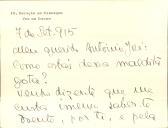 7 de Set. 915
Meu querido António José:
Como estás dessa maldita
gota?
Venho dizer-te que me
custa imenso saber-te
doente, por ti, e pela